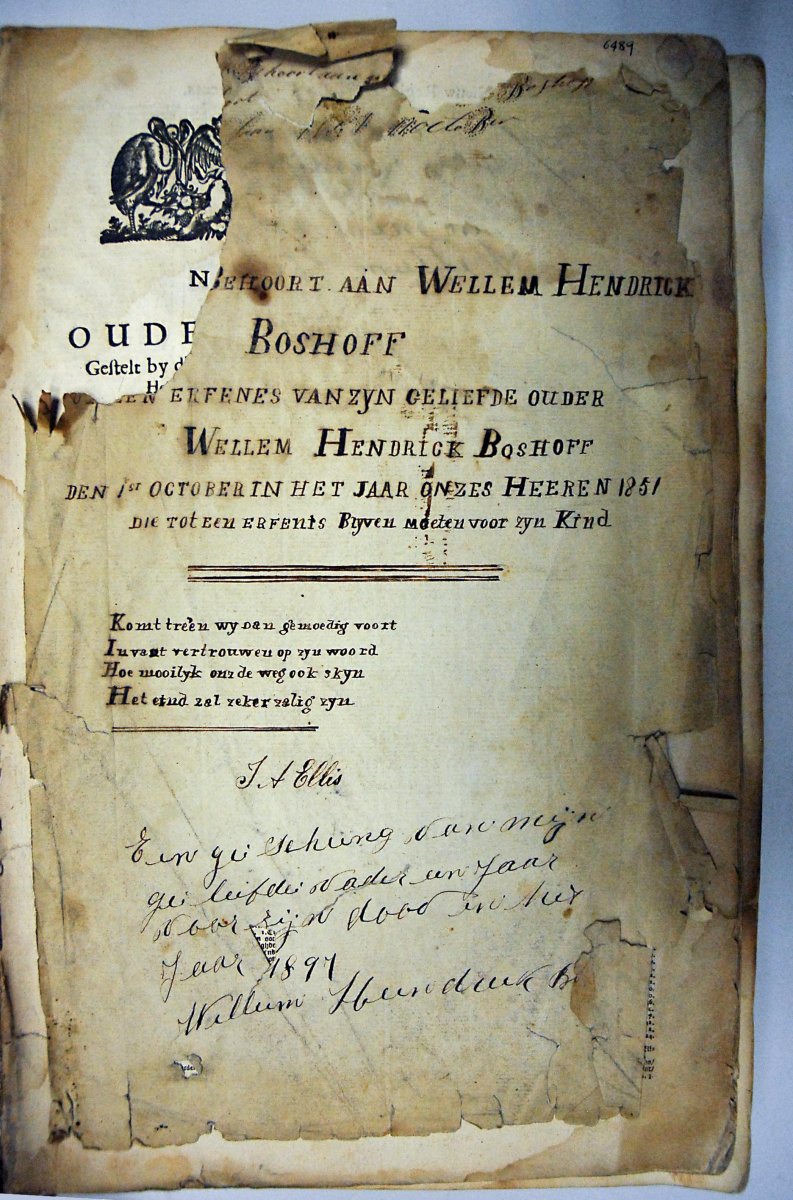 6489
Behoort aan Boshop
1851 October
N BEHOORT AAN WELLEM HENDRICK
OUDE BOSHOFF
Geſtelt by d
He
EEN ERFENES VAN ZYN GELIEFDE OUDER
WELLEM HENDRICK BOSHOFF
DEN 1ST OCTOBER IN HET JAAR ONZES HEEREN 1851
DIE TOT EEN ERFENIS BLYVEN MOETEN VOOR ZYN KIND
Komt treên wy dan gemoedig voort
In vast vertrouwen op zyn woord
Hoe mooilyk onz de weg ook skyn
Het eind zal zeker zalig zyn
J A Ellis
Een ge scheng van mijn
ge liefde vader een jaar
voor zijn dood in het
Jaar 1897
Willem Hendrick Bo